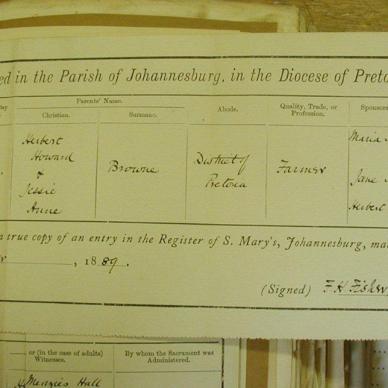 ed in the Parish of Johannesburg, in the Diocese of Preto
Parents' Name.
Christian.
Surname.
Abode.
Quality, Trade, or
Profession.
Sponsors
Herbert
Howard
&
Jessie
Anne
Browne
District of
Pretoria
Farmer
Maria
Jane
Herbert
a true copy of an entry in the Register of S. Mary's, Johannesburg, ma
, 1889.
(Signed) F H Fisher
or (in the case of adults)
Witnesses.
By whom the Sacrament was
Administered.
Menzies Hall